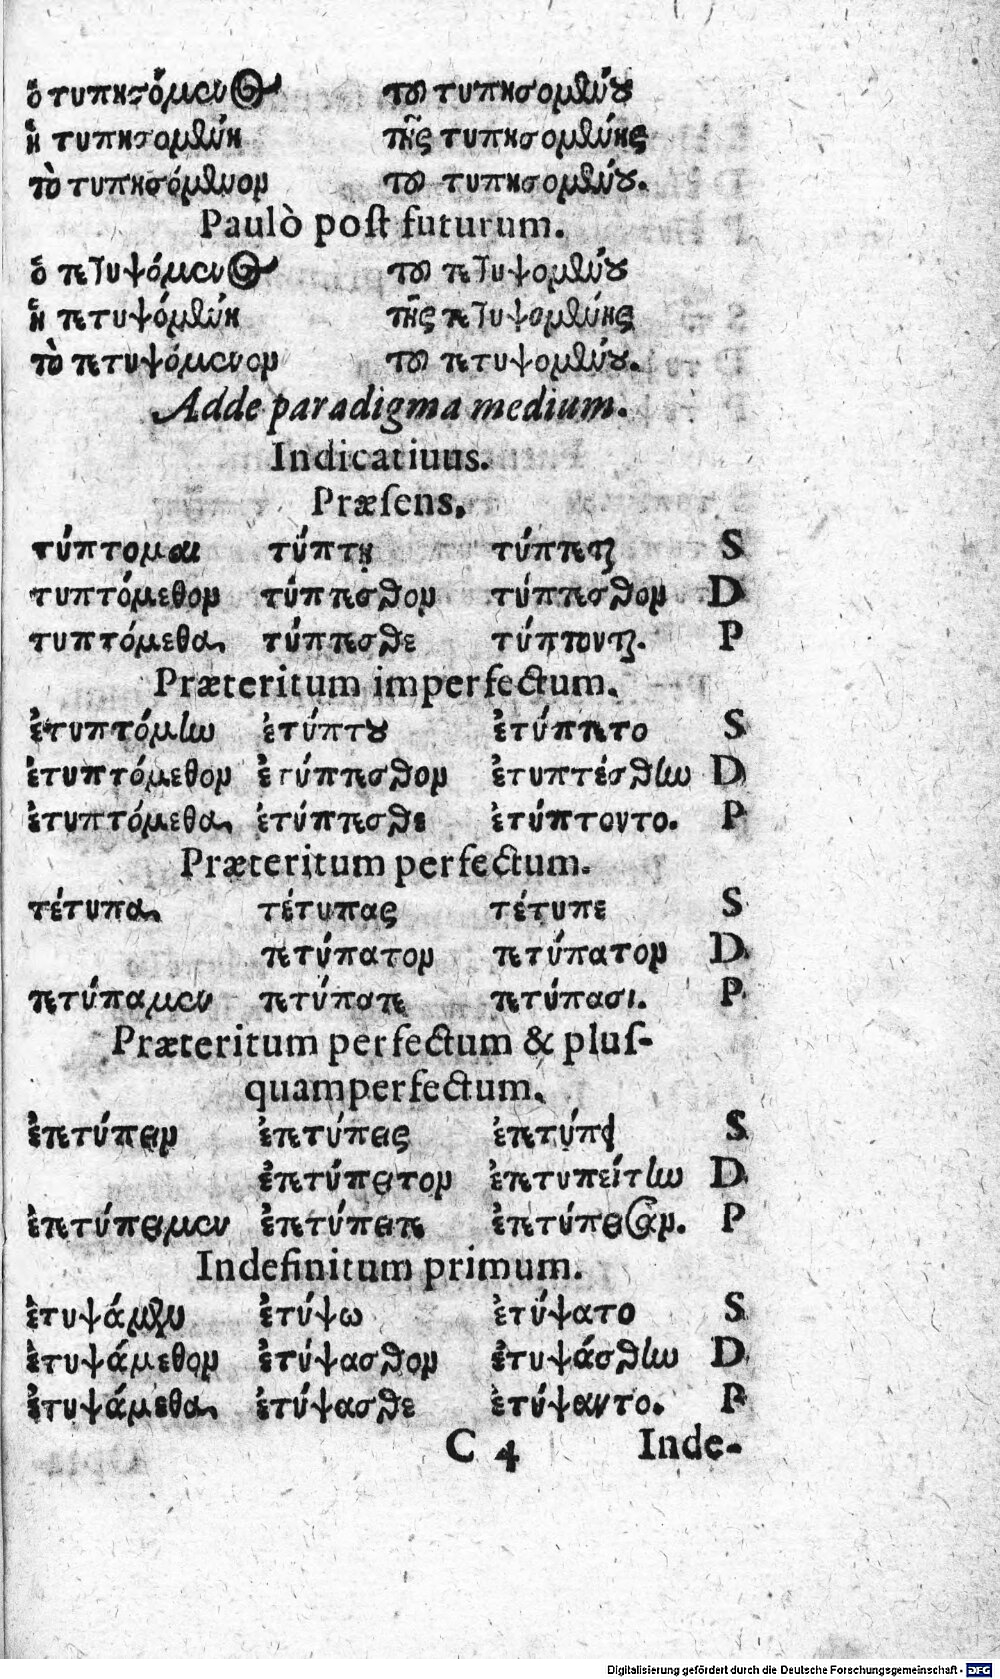 ὁ τυπησόμενος τοῦ τυπησομένου
ἡ τυπησομένη τῆς τυπησομένης
τὸ τυπησόμενον τοῦ τυπησομένου.
Paulò poſt futurum.
ὁ τετυψόμενος τοῦ τετυψομένου
ἡ τετυψόμένη τῆς τετυψομένης
τὸ τετυψόμενον τοῦ τετυψομένου.
Adde paradigma medium.
Indicatiuus.
Præſens.
τύπτομαι τύπτῃ τύπτεται S
τυπτόμεθον τύπτεσθον τύπτεσθον D
τυπτόμεθα τύπτεσθε τύπτονται. P
Præteritum imperfectum.
ἐτυπτόμην ἐτύπτου ἐτύπτετο S
ἐτυπτόμεθον ἐτύπτεσθον ἐτυπτέσθην D
ἐτυπτόμεθα ἐτύπτεσθε ἐτύπτοντο. P
Præteritum perfectum.
τέτυπα τέτυπας τέτυπε S
τετύπατον τετύπατον D
τετύπαμεν τετύπατε τετύπασι. P
Præteritum perfectum & pluſ-
quamperfectum.
ἐτετύπειν ἐτετύπεις ἐτετύπει S
ἐτετύπειτον ἐτετυπείτην D
ἐτετύπειμεν ἐτετύπειτε ἐτετύπεισαν. P
Indefinitum primum.
ἐτυψάμην ἐτύψω ἐτύψατο S
ἐτυψάμεθον ἐτύψασθον ἐτυψάσθην D
ἐτυψάμεθα ἐτύψασθε ἐτύψαντο. P
C 4 Inde-
Digitalisierung gefördert durch die Deutsche Forschungsgemeinschaft - DFG